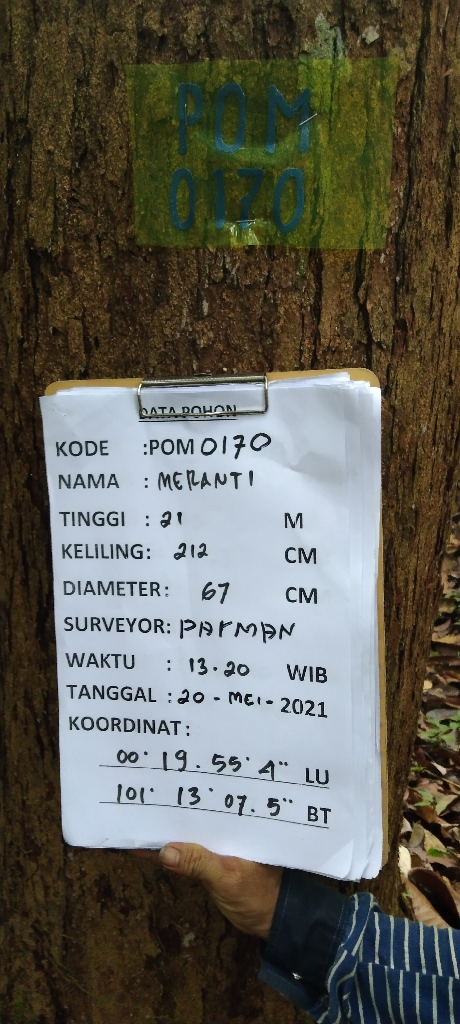 POM
0170
DATA POHON
KODE :POM 0170
NAMA : MERANTI
TINGGI : 21 M
KELILING: 212 CM
DIAMETER: 67 CM
SURVEYOR: PARMAN
WAKTU : 13.20 WIB
TANGGAL : 20 - MEI - 2021
KOORDINAT:
00° 19. 55' 4" LU
101° 13' 07. 5" BT